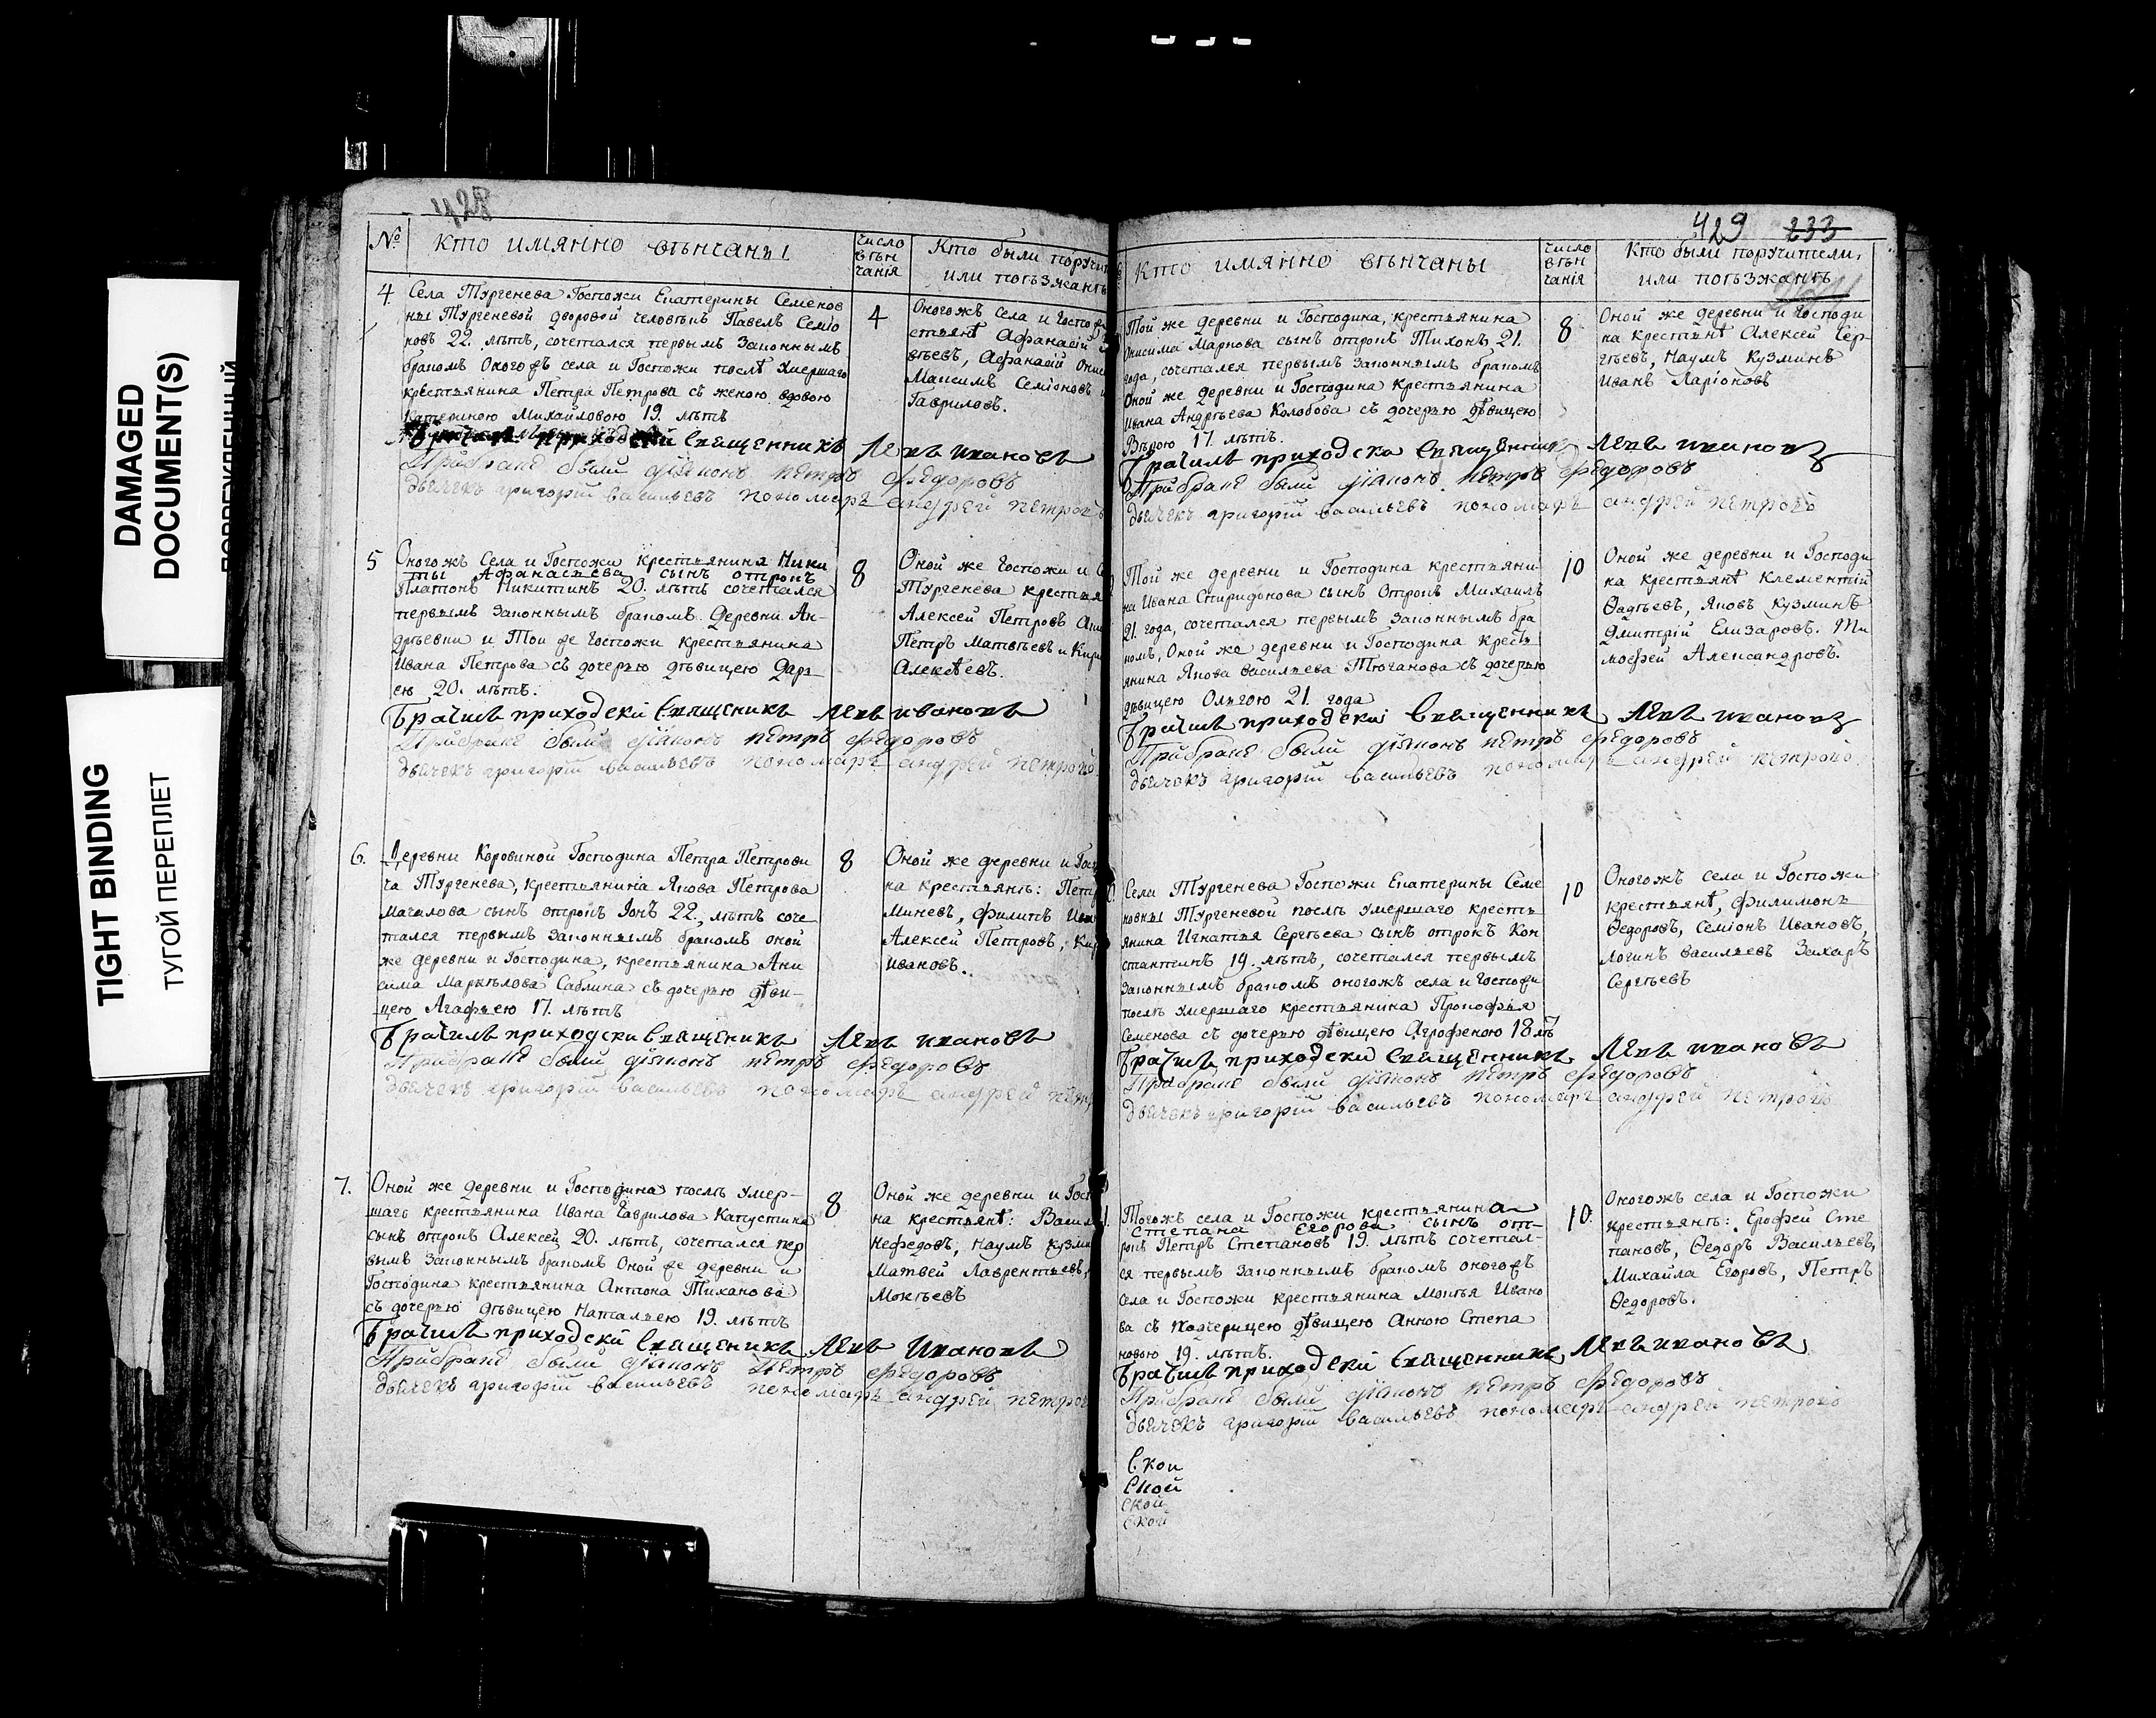 DAMAGED
DOCUMENT(S)
TIGHT BINDING
ТУГОЙ ПЕРЕПЛЕТ
428
№
кто имянно вѣнчаны
число
вѣн
чанія
Кто были поручит
или поѣзжанѣ
4
Села Тургенева Госпожи Екатерины Семенов
ны Тургеневой дворовой человѣкъ Павелъ Семіо
новъ 22. лѣтъ, сочетался первымъ законнымъ
бракомъ Оного же села и Госпожи послѣ умершаго
крестьянина Петра Петрова съ женою вдовою
Катериною Михайловою 19. лѣтъ
4
Оногожъ Села и Госпо
стьянѣ Афанасій
вѣевъ, Афанасій Они
Максимъ Семіоновъ и
Гавриловъ.
приходскій Священникъ Левъ Ивановъ
При бракѣ были діяконъ петръ федоровъ
дьячекъ григорій васильевъ пономарь андрей петровъ
5
Оногожъ Села и Госпожи крестьянина Ники
ты Афанасьева сынъ отрокъ
Платонъ Никитинъ 20. лѣтъ сочетался
первымъ законнымъ бракомъ Деревни Ан-
дрѣевки и Той же Госпожи крестьянина
Ивана Петрова съ дочерью дѣвицею Дарь-
ею 20. лѣтъ.
8
Оной же Госпожи и С
Тургенева крестья
Алексей Петровъ
Петръ Матвѣевъ и Кири
Алексѣевъ.
Брачилъ приходскій Священикъ Левъ ивановъ
При бракѣ были діяконъ петръ федоровъ
дьячекъ григорій васильевъ пономарь андрей петровъ
6.
Деревни Коровиной Господина Петра Петрови
ча Тургенева, крестьянина Якова Петрова
Мачалова сынъ отрокъ Іонъ 22. лѣтъ соче
тался первымъ законнымъ бракомъ оной
же деревни и Господина, крестьянина Ани
сима Маркѣлова Саблина съ дочерью дѣви-
цею Агафьею 17. лѣтъ
8
Оной же деревни и Гос
на крестьянѣ: Петр
Миневъ, Филипъ Ива
Алексей Петровъ, Кир
Ивановъ.
Брачилъ приходски Священикъ Левъ ивановъ
При бракѣ были діяконъ петръ федоровъ
дьячекъ григорій васильевъ пономарь андрей петр
7.
Оной же деревни и Господина послѣ умер-
шаго крестьянина Ивана Гаврилова Капустина
сынъ отрокъ Алексей 20. лѣтъ, сочетался пер
вымъ законнымъ бракомъ Оной же деревни и
Господина крестьянина Антона Тиханова
съ дочерью дѣвицею Натальею 19. лѣтъ
8
Оной же деревни и Гос
на крестьянѣ: Васил
Нефедовъ, Наумъ Кузми
Матвей Лаврентьевъ,
Мокѣевъ
Брачилъ приходскій Священикъ Левъ Ивановъ
При бракѣ были діяконъ Петръ федоровъ
дьячекъ григорій васильевъ пономарь андрей петров
429 233
Кто имянно вѣнчаны
число
вѣн
чанія
Кто были поручители,
или поѣзжанѣ
Той же деревни и Господина, крестьянина
Онисима Маркова сынъ отрокъ Тихонъ 21.
года, сочетался первымъ законнымъ бракомъ
Оной же деревни и Господина крестьянина
Ивана Андрѣева Колобова съ дочерью дѣвицею
Вѣрою 17. лѣтъ.
8
Оной же деревни и Господи
на крестьянѣ Алексей Сер-
гѣевъ, Наумъ Кузминъ
Иванъ Ларіоновъ
Брачилъ приходски Священникъ Левъ ивановъ
При бракѣ были діяконъ петръ федоровъ
дьячекъ григорій васильевъ пономарь андрей петровъ
Той же деревни и Господина крестьяни
на Ивана Спиридонова сынъ Отрокъ Михаилъ
21. года, сочетался первымъ законнымъ бра
комъ, Оной же деревни и Господина кресть
янина Якова Васильева Тюганова съ дочерью
дѣвицею Ольгою 21. года
10
Оной же деревни и Господи
на крестьянѣ Клементій
Ѳадѣевъ, Яковъ Кузминъ
Дмитрій Елизаровъ. Ти
мофей Александровъ.
Брачилъ приходскій Священникъ Левъ ивановъ
При бракѣ были діяконъ петръ федоровъ
дьячекъ григорій васильевъ пономарь андрей петровъ
Села Тургенева Госпожи Екатерины Семе
новны Тургеневой послѣ умершаго кресть
янина Игнатья Сергѣева сынъ отрокъ Кон
стантинъ 19. лѣтъ, сочетался первымъ
законнымъ бракомъ оногожъ села и Господи
послѣ умершаго крестьянина Прокофья
Семенова съ дочерью дѣвицею Агрофеною 18 лѣ
10
Оногожъ села и Госпожи
крестьянѣ, Филимонъ
Ѳедоровъ, Семіонъ Ивановъ,
Логинъ Васильевъ Захаръ
Сергѣевъ
Брачилъ приходски Священникъ Левъ ивановъ
При бракѣ были діяконъ петръ федоровъ
дьячекъ григорій васильевъ пономарь андрей петровъ
Тогожъ села и Госпожи крестьянина
Степана Егорова сынъ от-
рокъ Петръ Степановъ 19. лѣтъ сочетал-
ся первымъ законнымъ бракомъ оного же
Села и Госпожи крестьянина Мокѣя Ивано
ва съ падчерицею дѣвицею Анною Степа
новою 19. лѣтъ.
10.
Оногожъ села и Госпожи
крестьянѣ: Ерофей Сте
пановъ, Ѳедоръ Васильевъ,
Михайла Егоровъ, Петръ
Ѳедоровъ.
Брачилъ приходскій Священникъ Левъ ивановъ
При бракѣ были діяконъ петръ федоровъ
дьячекъ григорій васильевъ пономарь андрей петровъ
Скои
Ской
ской
ской